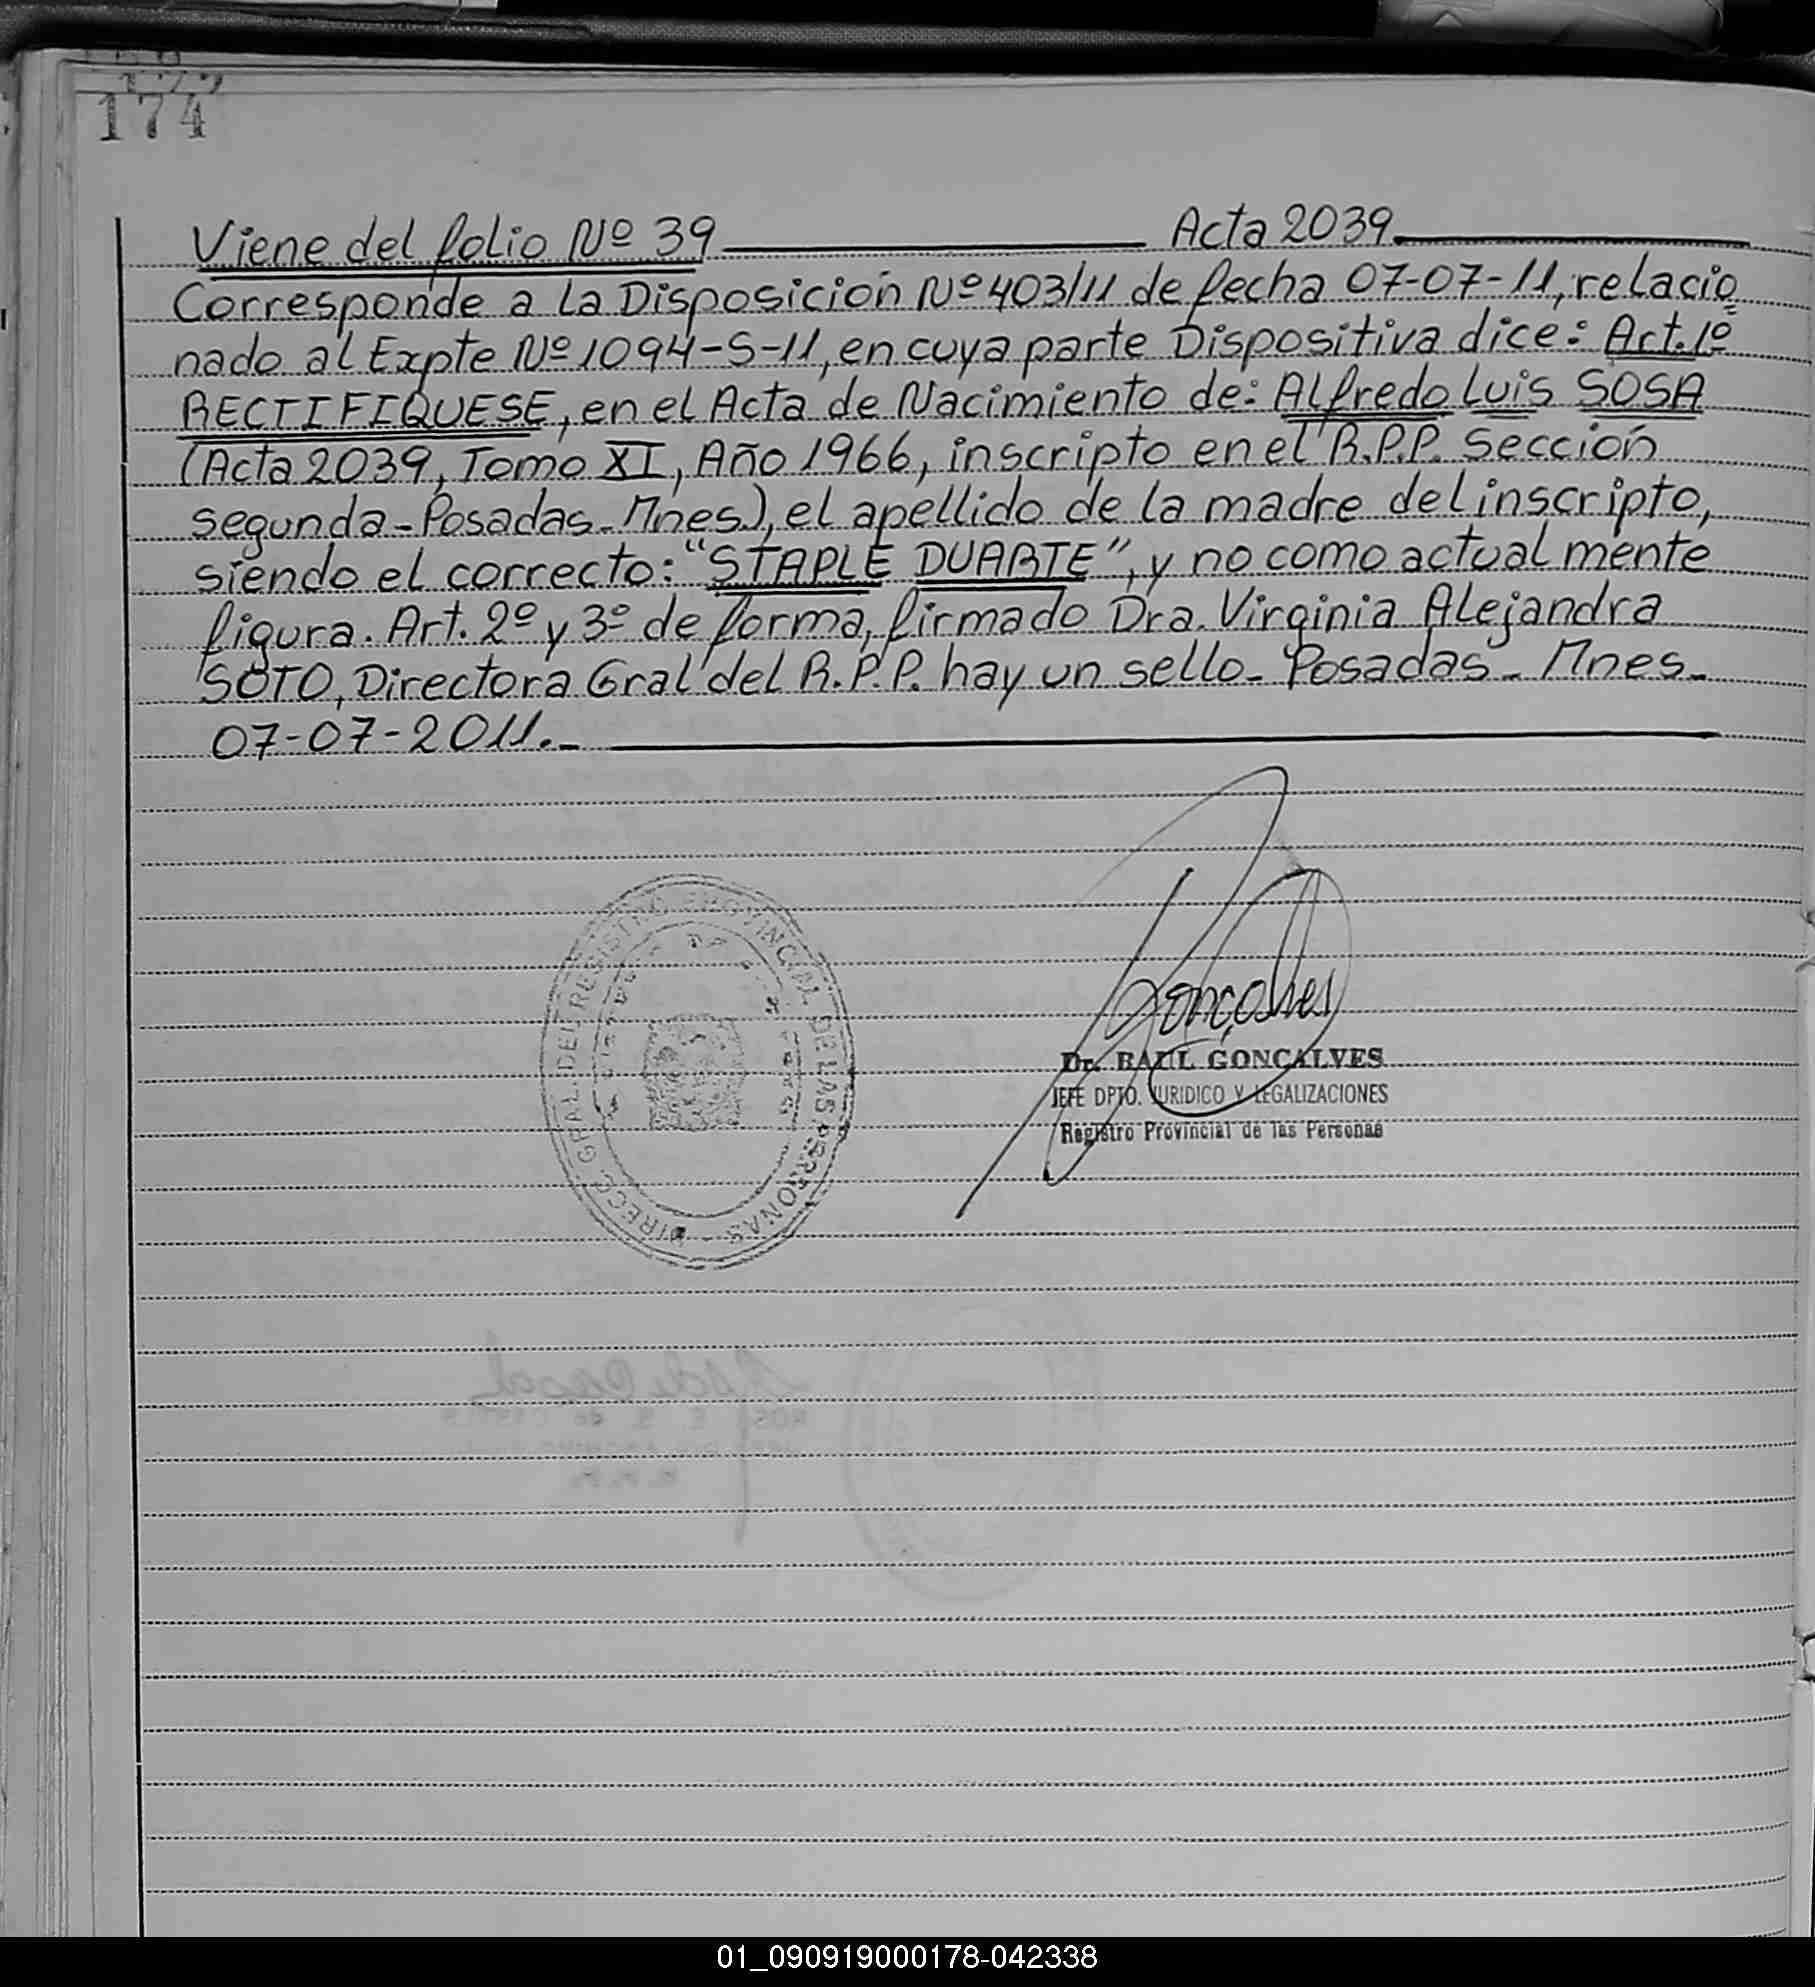 174
Viene del folio Nº 39 Acta 2039
Corresponde a la Disposición Nº 403/11 de fecha 07-07-11, relacio
nado al Expte Nº 1094-S-11, en cuya parte Dispositiva dice: Art. 1º
RECTIFIQUESE, en el Acta de Nacimiento de: Alfredo Luis SOSA
(Acta 2039, Tomo XI, Año 1966, inscripto en el R.P.P. Sección
segunda-Posadas-Mnes.), el apellido de la madre del inscripto,
siendo el correcto: "STAPLE DUARTE", y no como actualmente
figura. Art. 2º y 3º de forma, firmado Dra. Virginia Alejandra
SOTO, Directora Gral del R.P.P. hay un sello- Posadas- Mnes-
07-07-2011.-
DIRECC. GRAL. DEL REGISTRO PROVINCIAL DE LAS PERSONAS
Goncalves
Dr. RAUL GONCALVES
JEFE DPTO. JURIDICO Y LEGALIZACIONES
Registro Provincial de las Personas
01_090919000178-042338